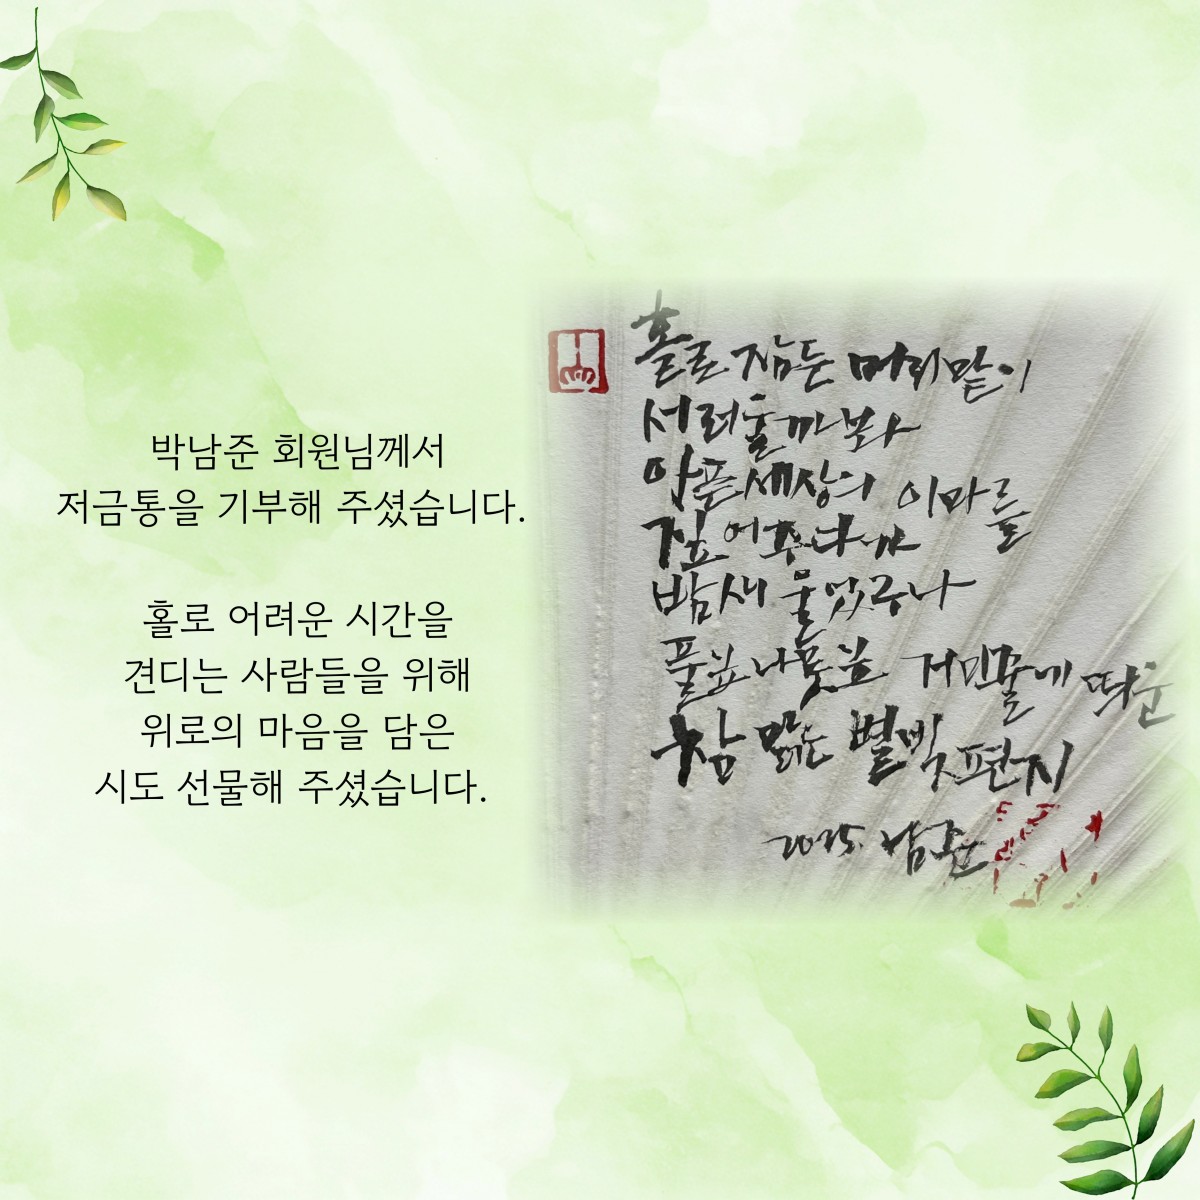 박남준 회원님께서
저금통을 기부해 주셨습니다.
홀로 어려운 시간을
견디는 사람들을 위해
위로의 마음을 담은
시도 선물해 주셨습니다.
홀로 잠든 머리맡이
서러울까봐
아픈 세상의 이마를
짚어주다가
밤새 울었구나
풀잎 나뭇잎
참 맑은 별빛 편지
2025. 남준